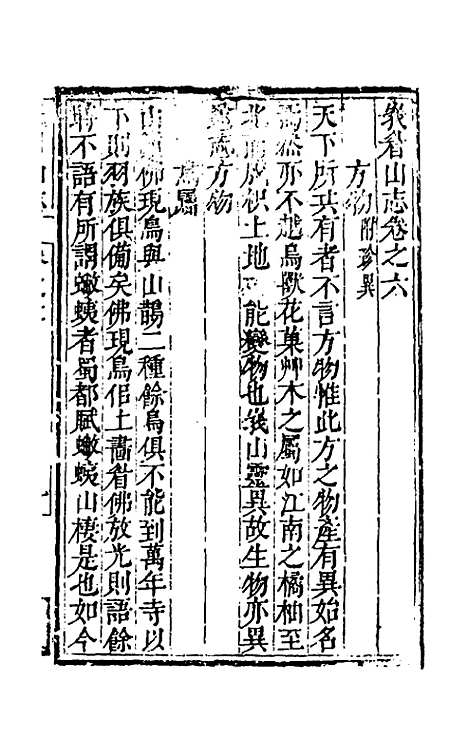 峩眉山志卷之六
方物附珍異
天下所共有者不言方物惟此方之物產有異始名
焉然亦不越鳥獸花菓艸木之屬如江南之橘柚至
北而成枳土地 能變物也峩山靈異故生物亦異
方物
鳥屬
山 佛現鳥與山鷴二種餘鳥俱不能到萬年寺以
下則羽族俱備矣佛現鳥佀土畵眉佛放光則語餘
時不語有所謂蠍蛦者蜀都賦蠍蛦山棲是也如今